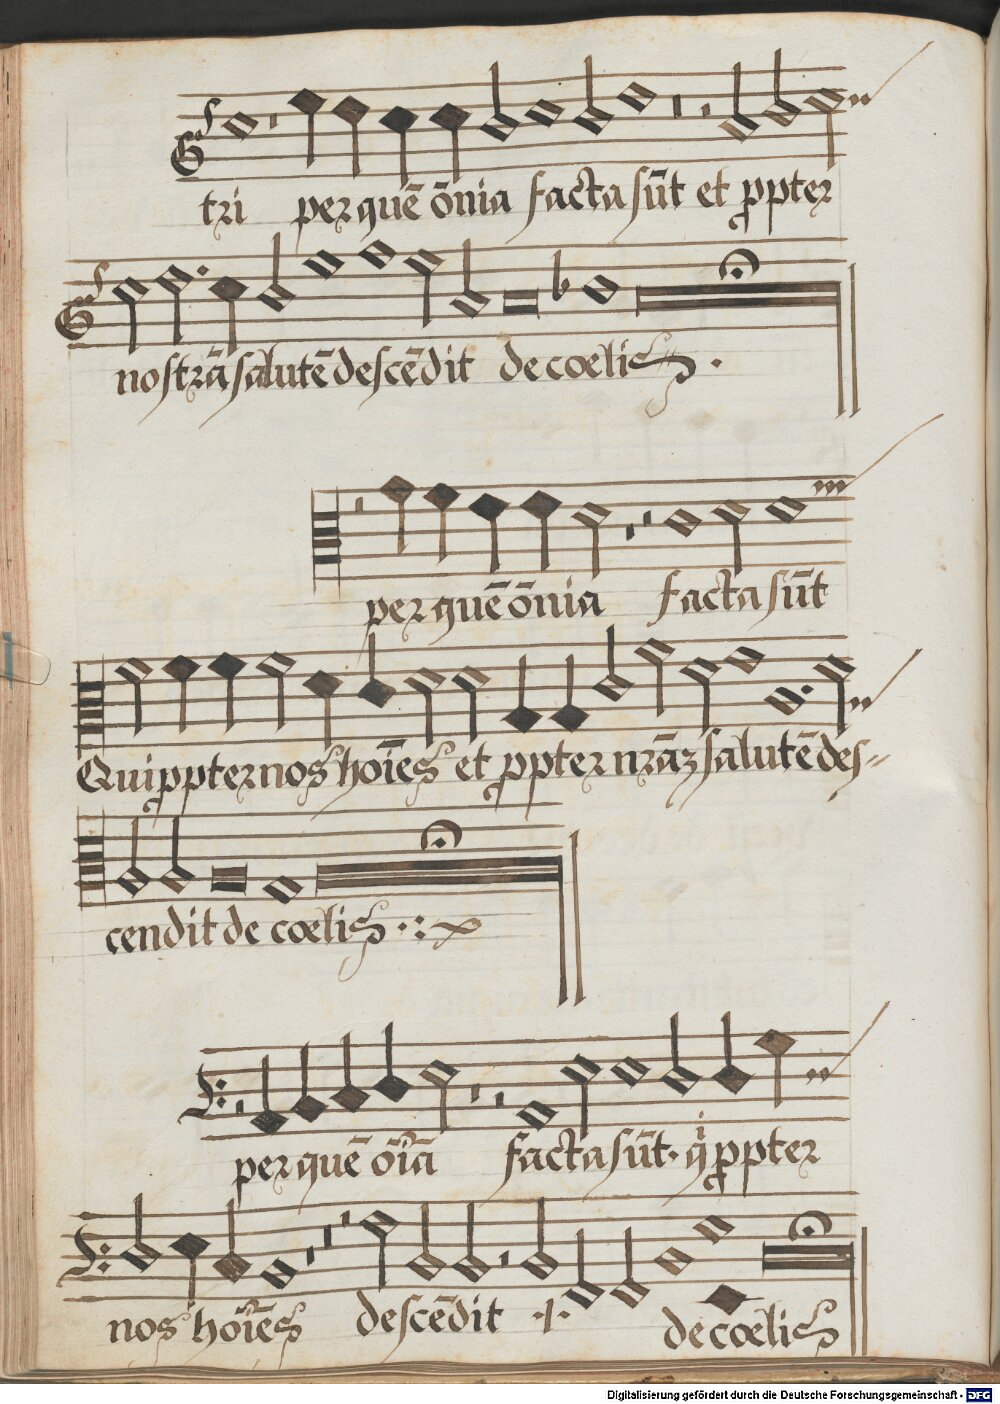 tri per quē ōnia facta sūt et ꝓpter
nostrā salutē descēdit de cœlis.
per quē ōnia facta sūt
Qui ꝓpter nos hoīes et ꝓpter nrāz salutē des-
cendit de cœlis.
per quē oīa facta sūt. qⁱ ꝓpter
nos hoīes descēdit ·/· de cœlis
Digitalisierung gefördert durch die Deutsche Forschungsgemeinschaft - DFG